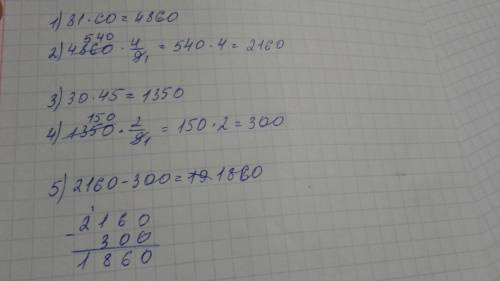 1) 81 · 60 = 4860
540
2) 4860 · 4/9 1 = 540 · 4 = 2160
3) 30 · 45 = 1350
150
4) 1350 · 2/9 1 = 150 · 2 = 300
5) 2160 - 300 = 19 1860
2160
- 300
1860